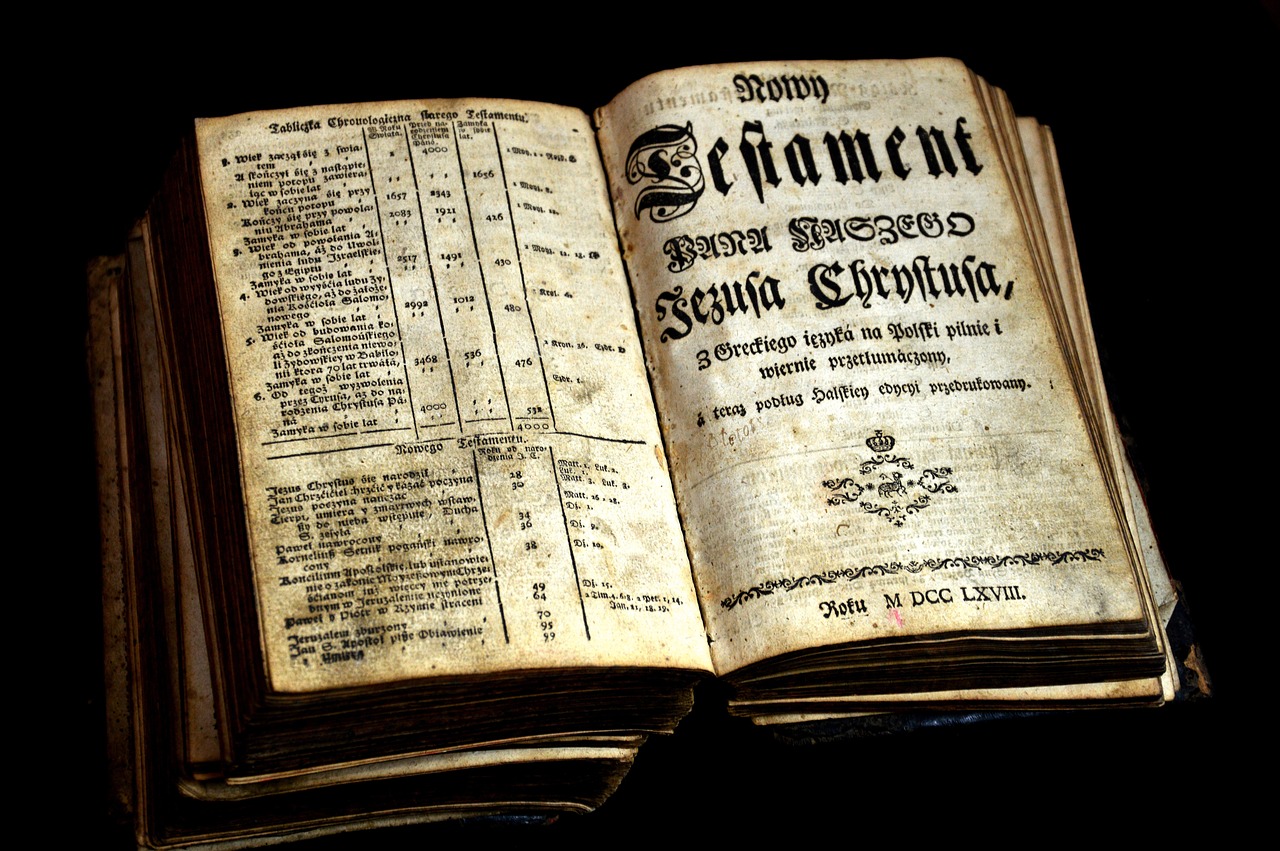 Tabliczka Chronologiczna starego Testamentu.
W Roku Swiata.
Przed narodzeniem Chrystusa Pana.
Zamyka w sobie lat.
1. Wiek zaczął się z świa-
tem 1 4000 1 Moy. 1
A skończył się z nastąpie-
niem potopu zawiera-
iąc w sobie lat 1656
2. Wiek zaczyna się przy
końcu potopu 1657 2343
Kończy się przy powoła-
niu Abrahama 2083 1921
Zamyka w sobie lat 426
3. Wiek od powołania A-
brahama, aż do Uwol-
nienia ludu Izraelskie-
go z Egiptu 2517 1491
Zamyka w sobie lat 430
4. Wiek od wyyścia ludu Zy-
dowskiego, aż do założe-
nia Kościoła Salomo-
nowego 2992 1012
Zamyka w sobie lat 480
5. Wiek od budowania ko-
ścioła Salomońskiego
aż do zkończenia niewo-
li Zydowskiey w Babilo-
nii ktora 70 lat trwała, 3468 536
Zamyka w sobie lat 476
6. Od tegoż wyzwolenia
przez Cyrusa, aż do na-
rodzenia Chrystusa Pa-
na 4000
Zamyka w sobie lat 532
4000
Nowego Testamentu.
Roku od naro-
dzenia J. C.
Jezus Chrystus się narodził
Jan Chrzciciel chrzcić y kazać poczyna 28
Jezus poczyna nauczać 30
Cierpi, umiera y zmartwych wstaw-
szy do nieba wstępuie, Ducha
S. zsyła 34
Paweł nawrocony 36
Korneliusz Setnik pogański nawro-
cony 38
Koncilium Apostolskie, lub ustanowie-
nie o zakonie Moyżeszowym Chrze-
ścianom iuż więcey nie potrze-
bnym w Jeruzalemie uczynione 49
Paweł y Piotr w Rzymie straceni 64
Jeruzalem zburzony 70
Jan S. Apostoł pisze Obiawienie 95
y umiera 99
Nowy
Testament
PANA NASZEGO
Jezusa Chrystusa,
Z Greckiego ięzyká na Polski pilnie i
wiernie przetłumáczony,
á teraz podług Halskiey edycyi przedrukowany.
Roku M DCC LXVIII.